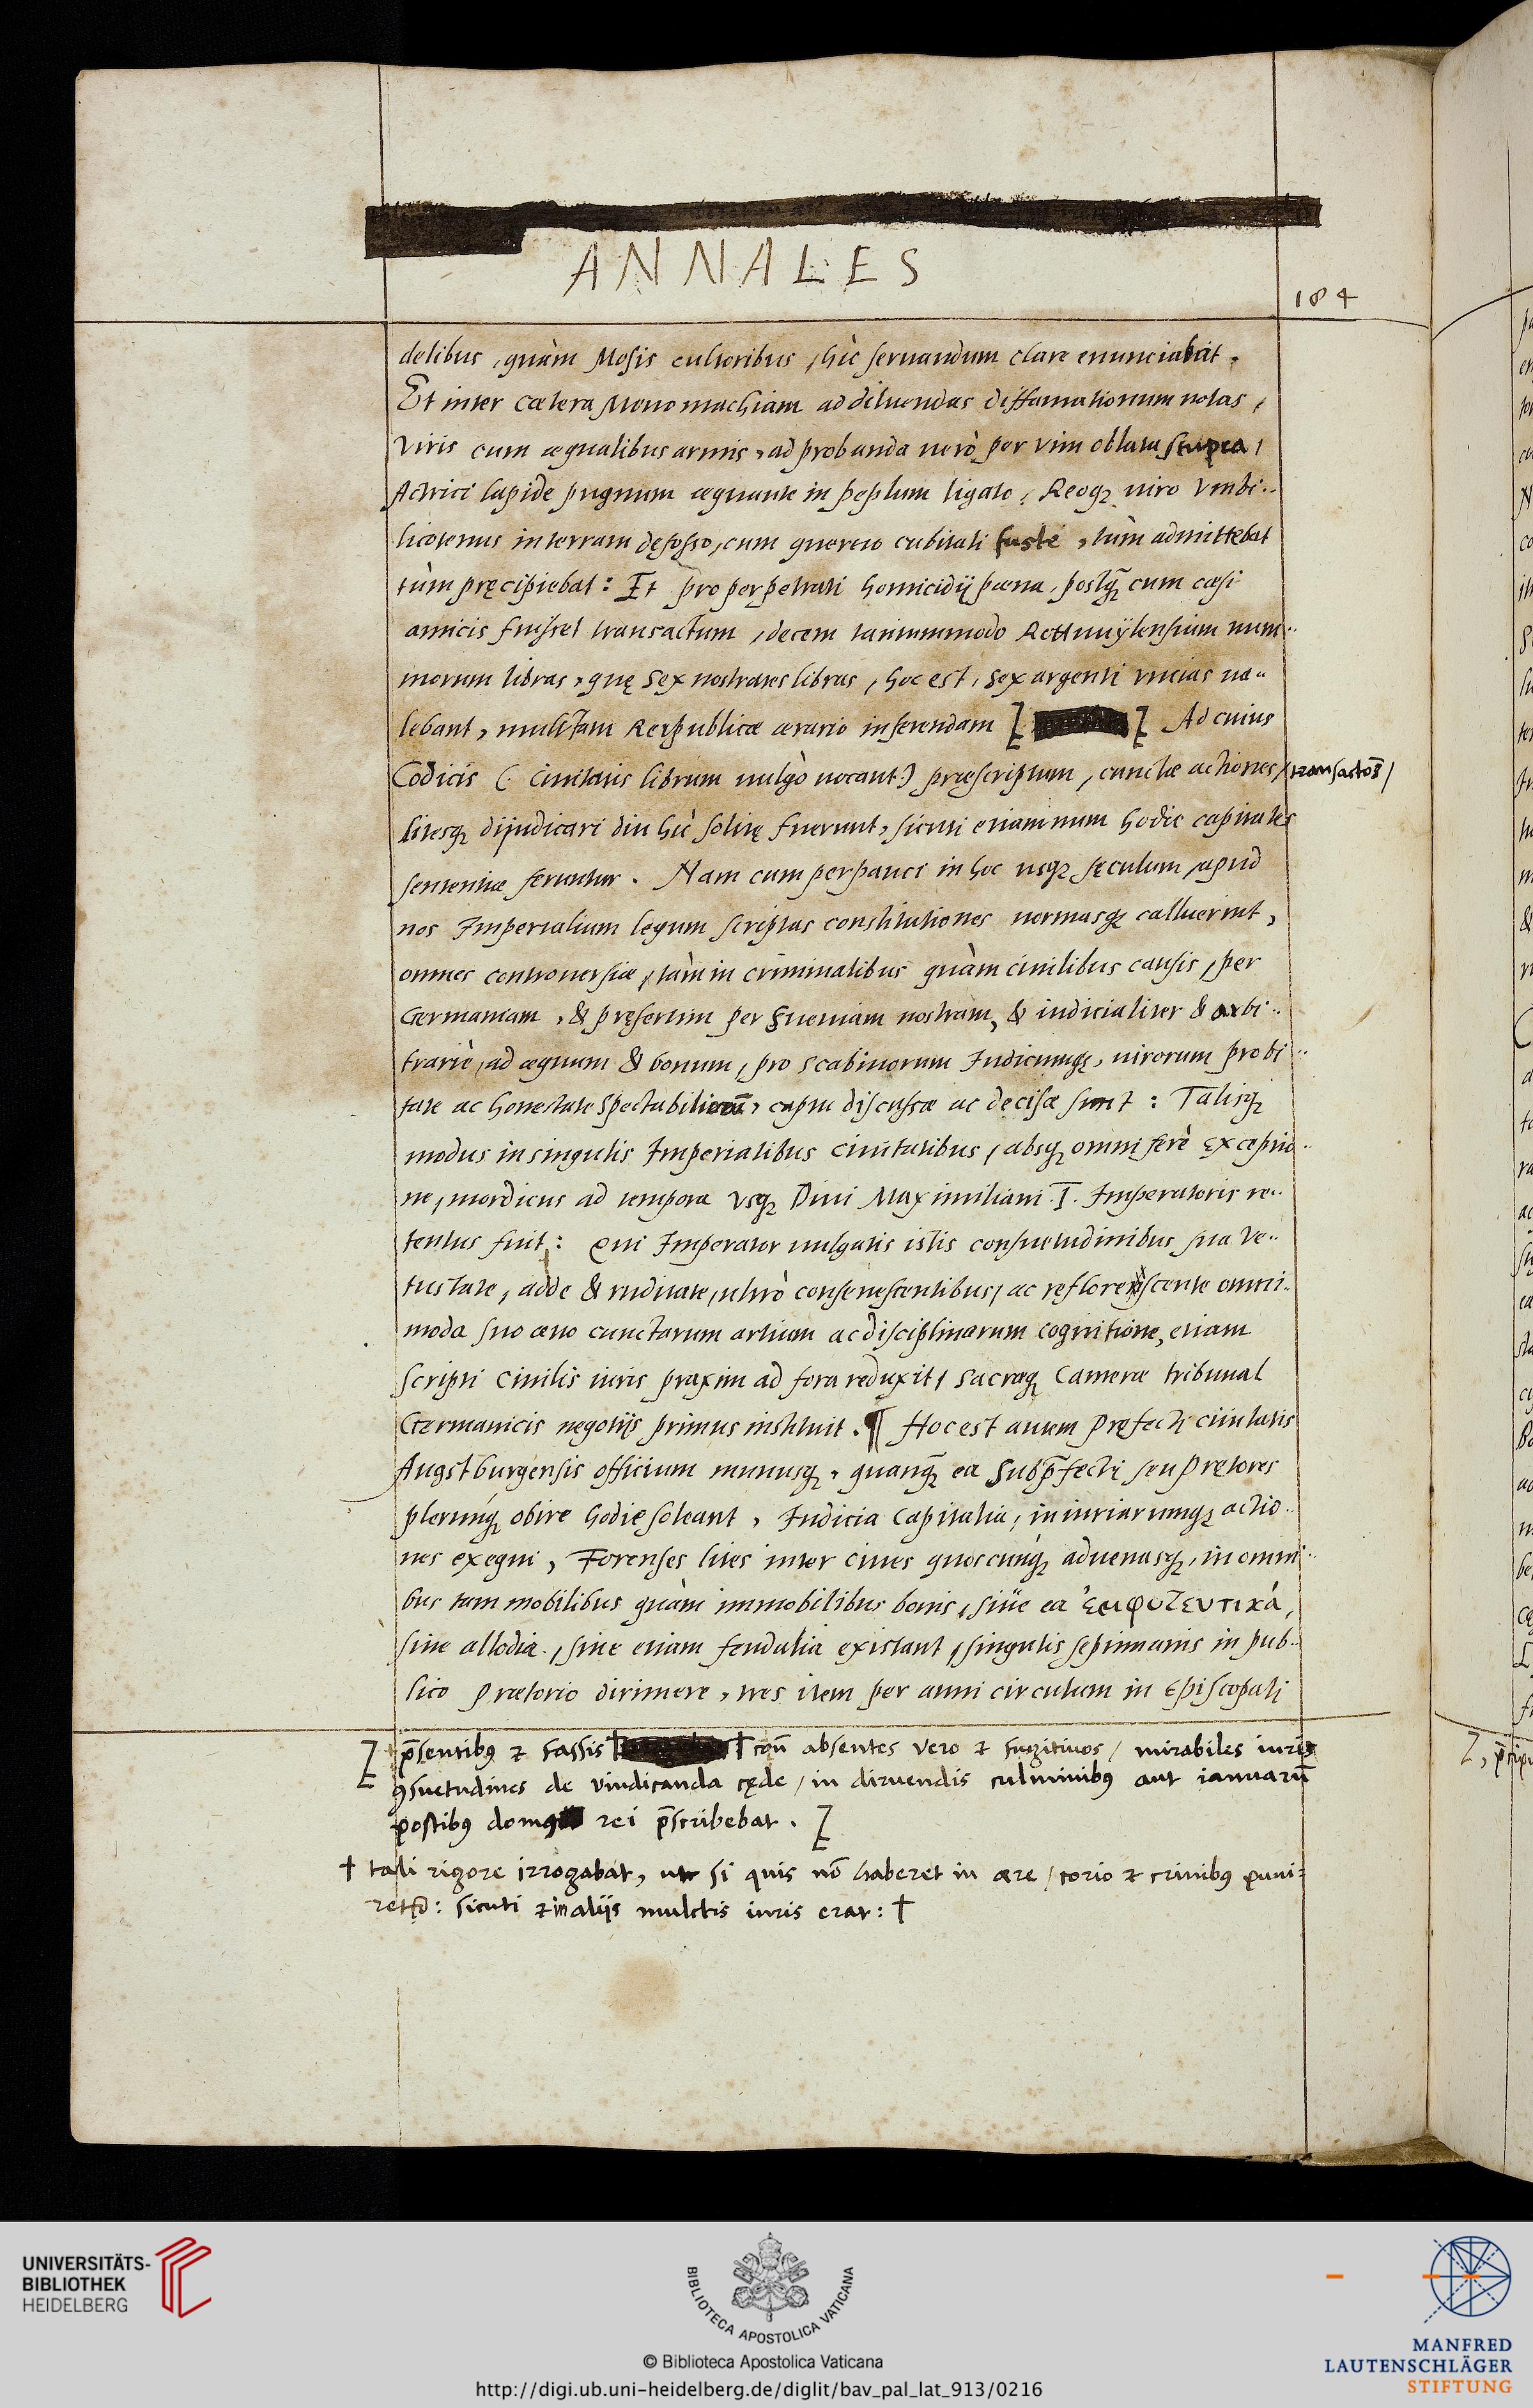 ANNALES
184
delibus, quàm Mosis cultoribus, hìc seruandum clare enunciabat.
Et inter cætera Monomachiam ad diluendas diffamationum notas,
viris cum æqualibus armis, ad probanda uerò per vim oblata stupra,
Actrici lapide pugnum æquante in peplum ligato, Reoq; uiro Vmbi..
licotenus in terram defosso, cum querno cubitali fuste, tùm admittebat
tùm pręcipiebat: Et pro perpetrati homicidij pœna, postq̃ cum cæsi
amicis fuisset transactum, decem tantummodo Rottwÿlensium num..
morum libras, quę sex nostrates libras, hoc est, sex argenti vncias ua..
lebant, mulctam Reipublicæ ærario inferendam [ [ Ad cuius
Codicis (Ciuitatis librum uulgò uocant) præscriptum, cunctæ actiones, transactões,
litesq; dijudicari diu hìc solitę fuerunt, sicuti etiamnum hodie capitales
sententiæ feruntur. Nam cum perpauci in hoc usq; sęculum, apud
nos Imperialium legum scriptas constitutiones normasq; calluerint,
omnes controuersiæ, tàm in criminalibus quàm ciuilibus causis, per
Germaniam, & pręsertim per Sueuiam nostram, & iudicialiter & arbi..
trariè, ad æquum & bonum, pro scabinorum Iudicumq;, uirorum probi..
tate ac honestate spectabiliorũ, captu discussæ ac decisæ sunt: Talisq;
modus in singulis Imperialibus Ciuitatibus, absq; omni ferè exceptio..
ne, mordicus ad tempora vsq; Diui Maximiliani .I. Imperatoris re..
tentus fuit: Qui Imperator uulgatis istis consuetudinibus sua ve..
tustate, adde & ruditate, ultrò consenescentibus, ac reflorescente omni..
moda suo æuo cunctarum artium ac disciplinarum cognitione, etiam
scripti Ciuilis iuris praxim ad fora reduxit, sacræq; Cameræ tribunal
Germanicis negotijs primus instituit. ¶ Hoc est autem Pręfecti ciuitatis
Augstburgensis officium munusq;, quanq̃ ea Subp̃fecti seu Prętores
plerunq; obire hodie soleant, Iudicia Capitalia, iniuriarumq; actio..
nes exequi, Forenses lites inter ciues quoscunq; aduenasq;, in omni..
bus tam mobilibus quàm immobilibus bonis, siue ea ἐμφυτευτικά,
siue allodia, siue etiam feudalia existant, singulis septimanis in pub..
lico Prætorio dirimere, tres item per anni circulum in Episcopali
[ p̃sentibꝯ & fassis † † coñ absentes vero & fugitiuos, mirabiles iuris
ꝯsuetudines de vindicanda cęde, in diruendis culminibꝯ aut ianuarũ
postibꝯ domꝯ rei p̃scribebat. [
† tali rigore irrogabat, ut si quis nõ haberet in ære, corio & crinibꝯ puni=
retur: sicuti & in alijs mulctis iuris erat: †
UNIVERSITÄTS-
BIBLIOTHEK
HEIDELBERG
BIBLIOTECA APOSTOLICA VATICANA
© Biblioteca Apostolica Vaticana
http://digi.ub.uni-heidelberg.de/diglit/bav_pal_lat_913/0216
MANFRED
LAUTENSCHLÄGER
STIFTUNG